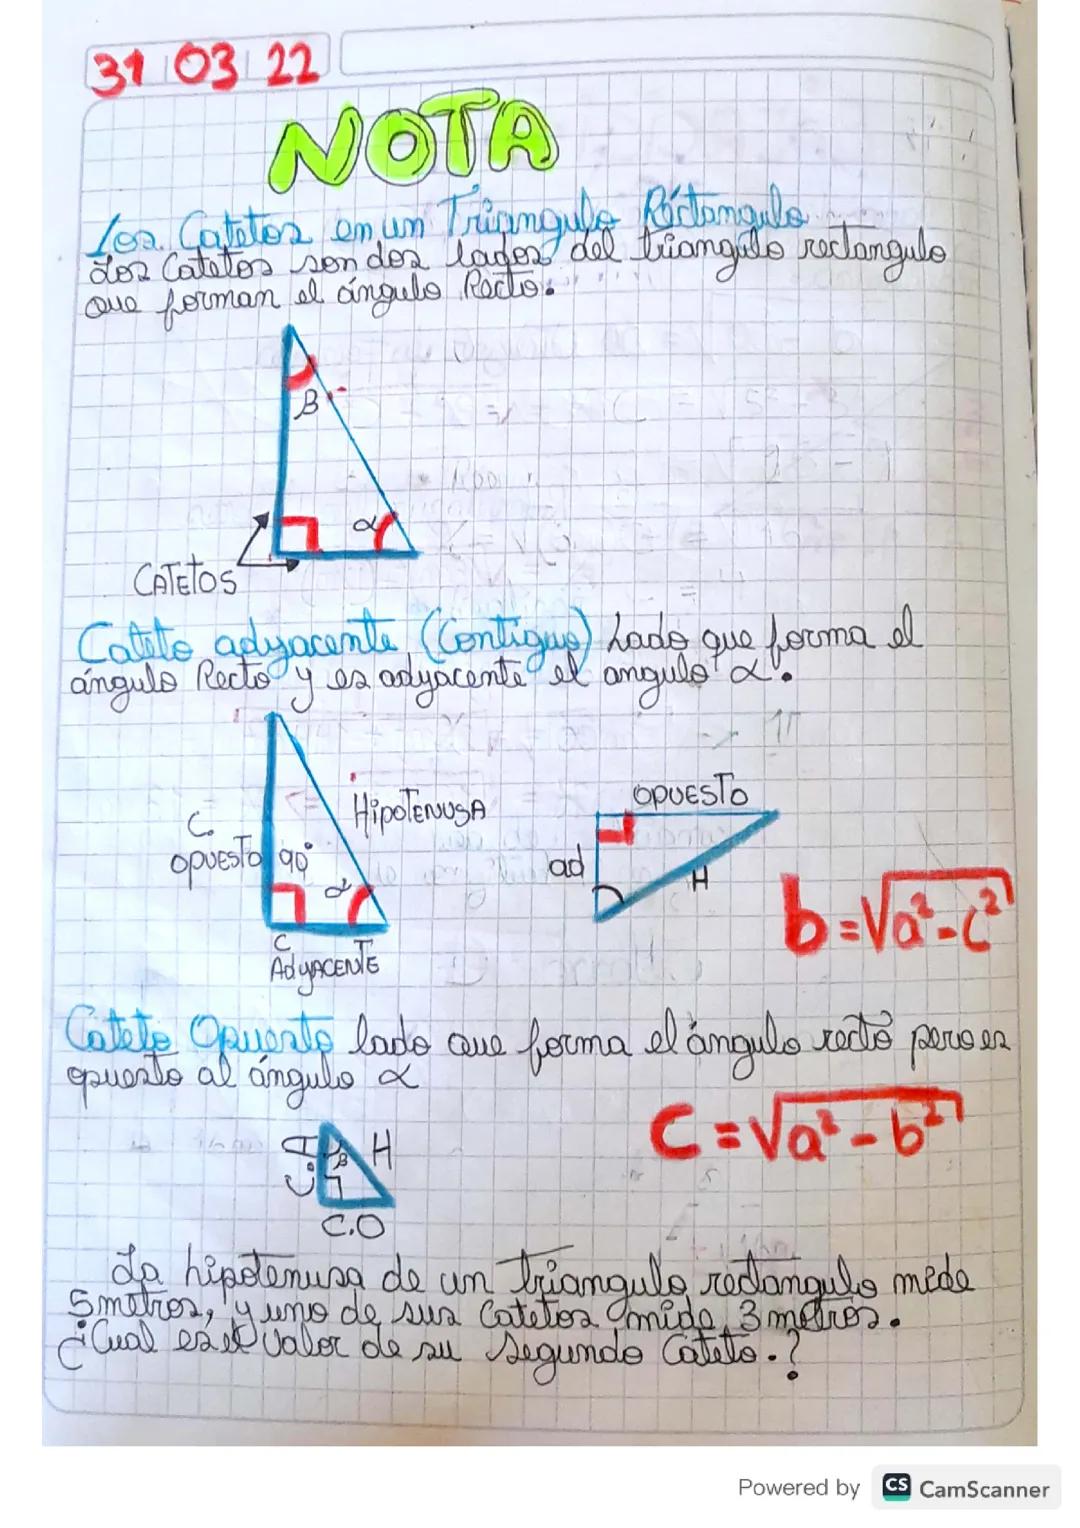 31 03 22
NOTA
Los Catetos en un Triangulo Réctangulo
Los Catetos son dos lados del triangulo rectangulo
que forman el ángulo Recto.
B
α
CATETOS
Cateto adyacente (Contiguo) Lado que forma el
ángulo Recto y es adyacente el angulo α.
HipOTENUSA
C.
OPUESTO
90°
α
C T
AdyACENTE
OPUESTO
ad
H
b=√a²-c²
Cateto Opuesto lado que forma el ángulo recto pero es
opuesto al ángulo α
C = √a² - b²
C.A
B
H
C.O
La hipotenusa de un triangulo rectangulo mide
5 metros, y uno de sus Catetos mide 3 metros.
¿Cual es el valor de su segundo Cateto.?
Powered by CS CamScanner